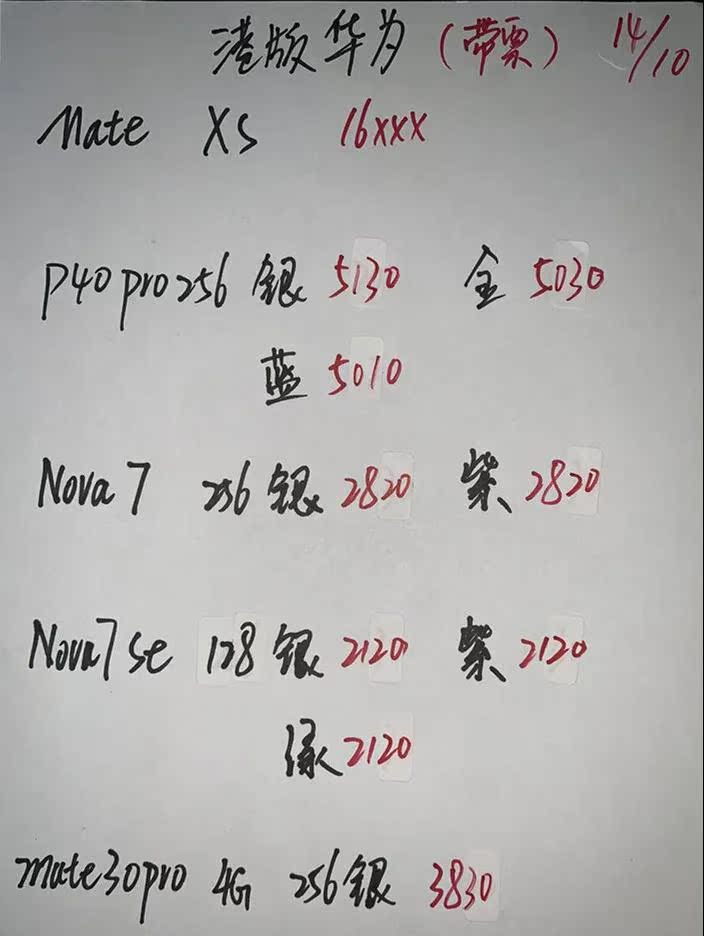 港版华为（带票） 14/10
Mate XS 16xxx
P40 pro 256 银 5130 金 5030
蓝 5010
Nova 7 256 银 2820 紫 2820
Nova7 se 128 银 2120 紫 2120
绿 2120
mate30pro 4G 256 银 3830